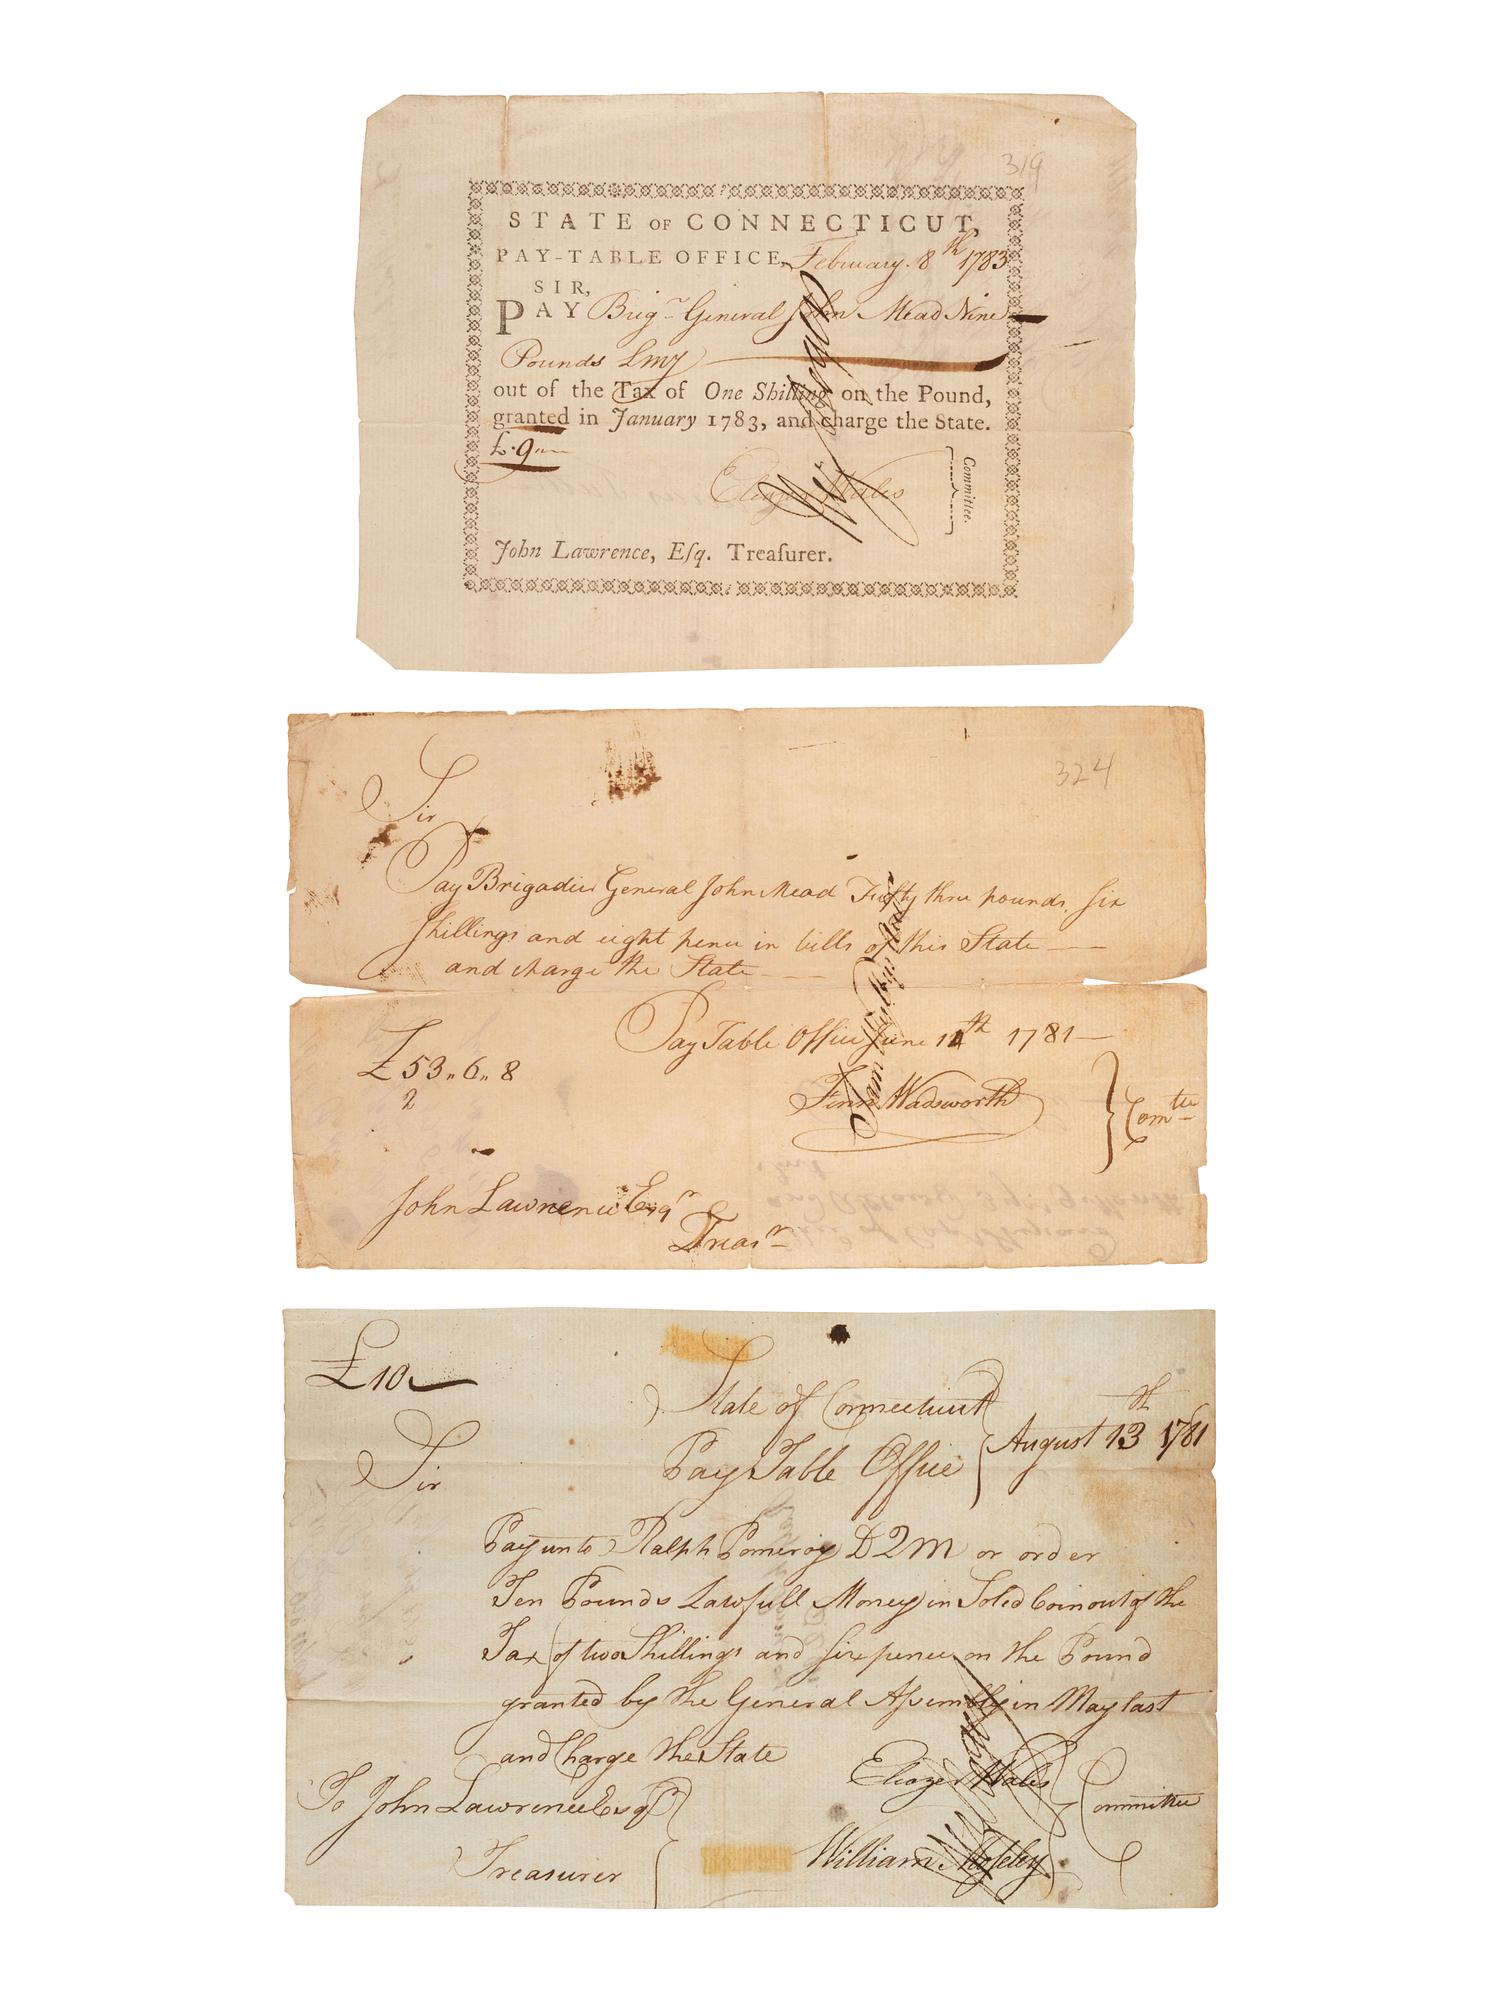 319
STATE OF CONNECTICUT,
PAY-TABLE OFFICE, February 8th 1783
SIR,
PAY Brigr General John Mead Nine
Pounds Lmy
out of the Tax of One Shilling on the Pound,
granted in January 1783, and charge the State.
£.9
Eliazer Wales
Committee.
John Lawrence, Eſq. Treaſurer.
324
Sir
Pay Brigadier General John Mead Fifty three pounds, six
shillings and eight pence in bills of this State
and charge the State
Pay Table Office June 1 th 1781
£53,,6,,8
2
Fenn Wadsworth
Comtee
John Lawrence Esqr
Treasr
£10
State of Connecticut
Pay Table Office
August 13th 1781
Sir
Pay unto Ralph Pomeroy DQM or order
Ten Pounds Lawfull Money in Solid Coin out of the
Tax of two Shillings and sixpence on the Pound
granted by the General Aſsembly in May last
and Charge the State
Eliazer Wales
Committee
To John Lawrence Esqr
Treasurer
William Moſeley